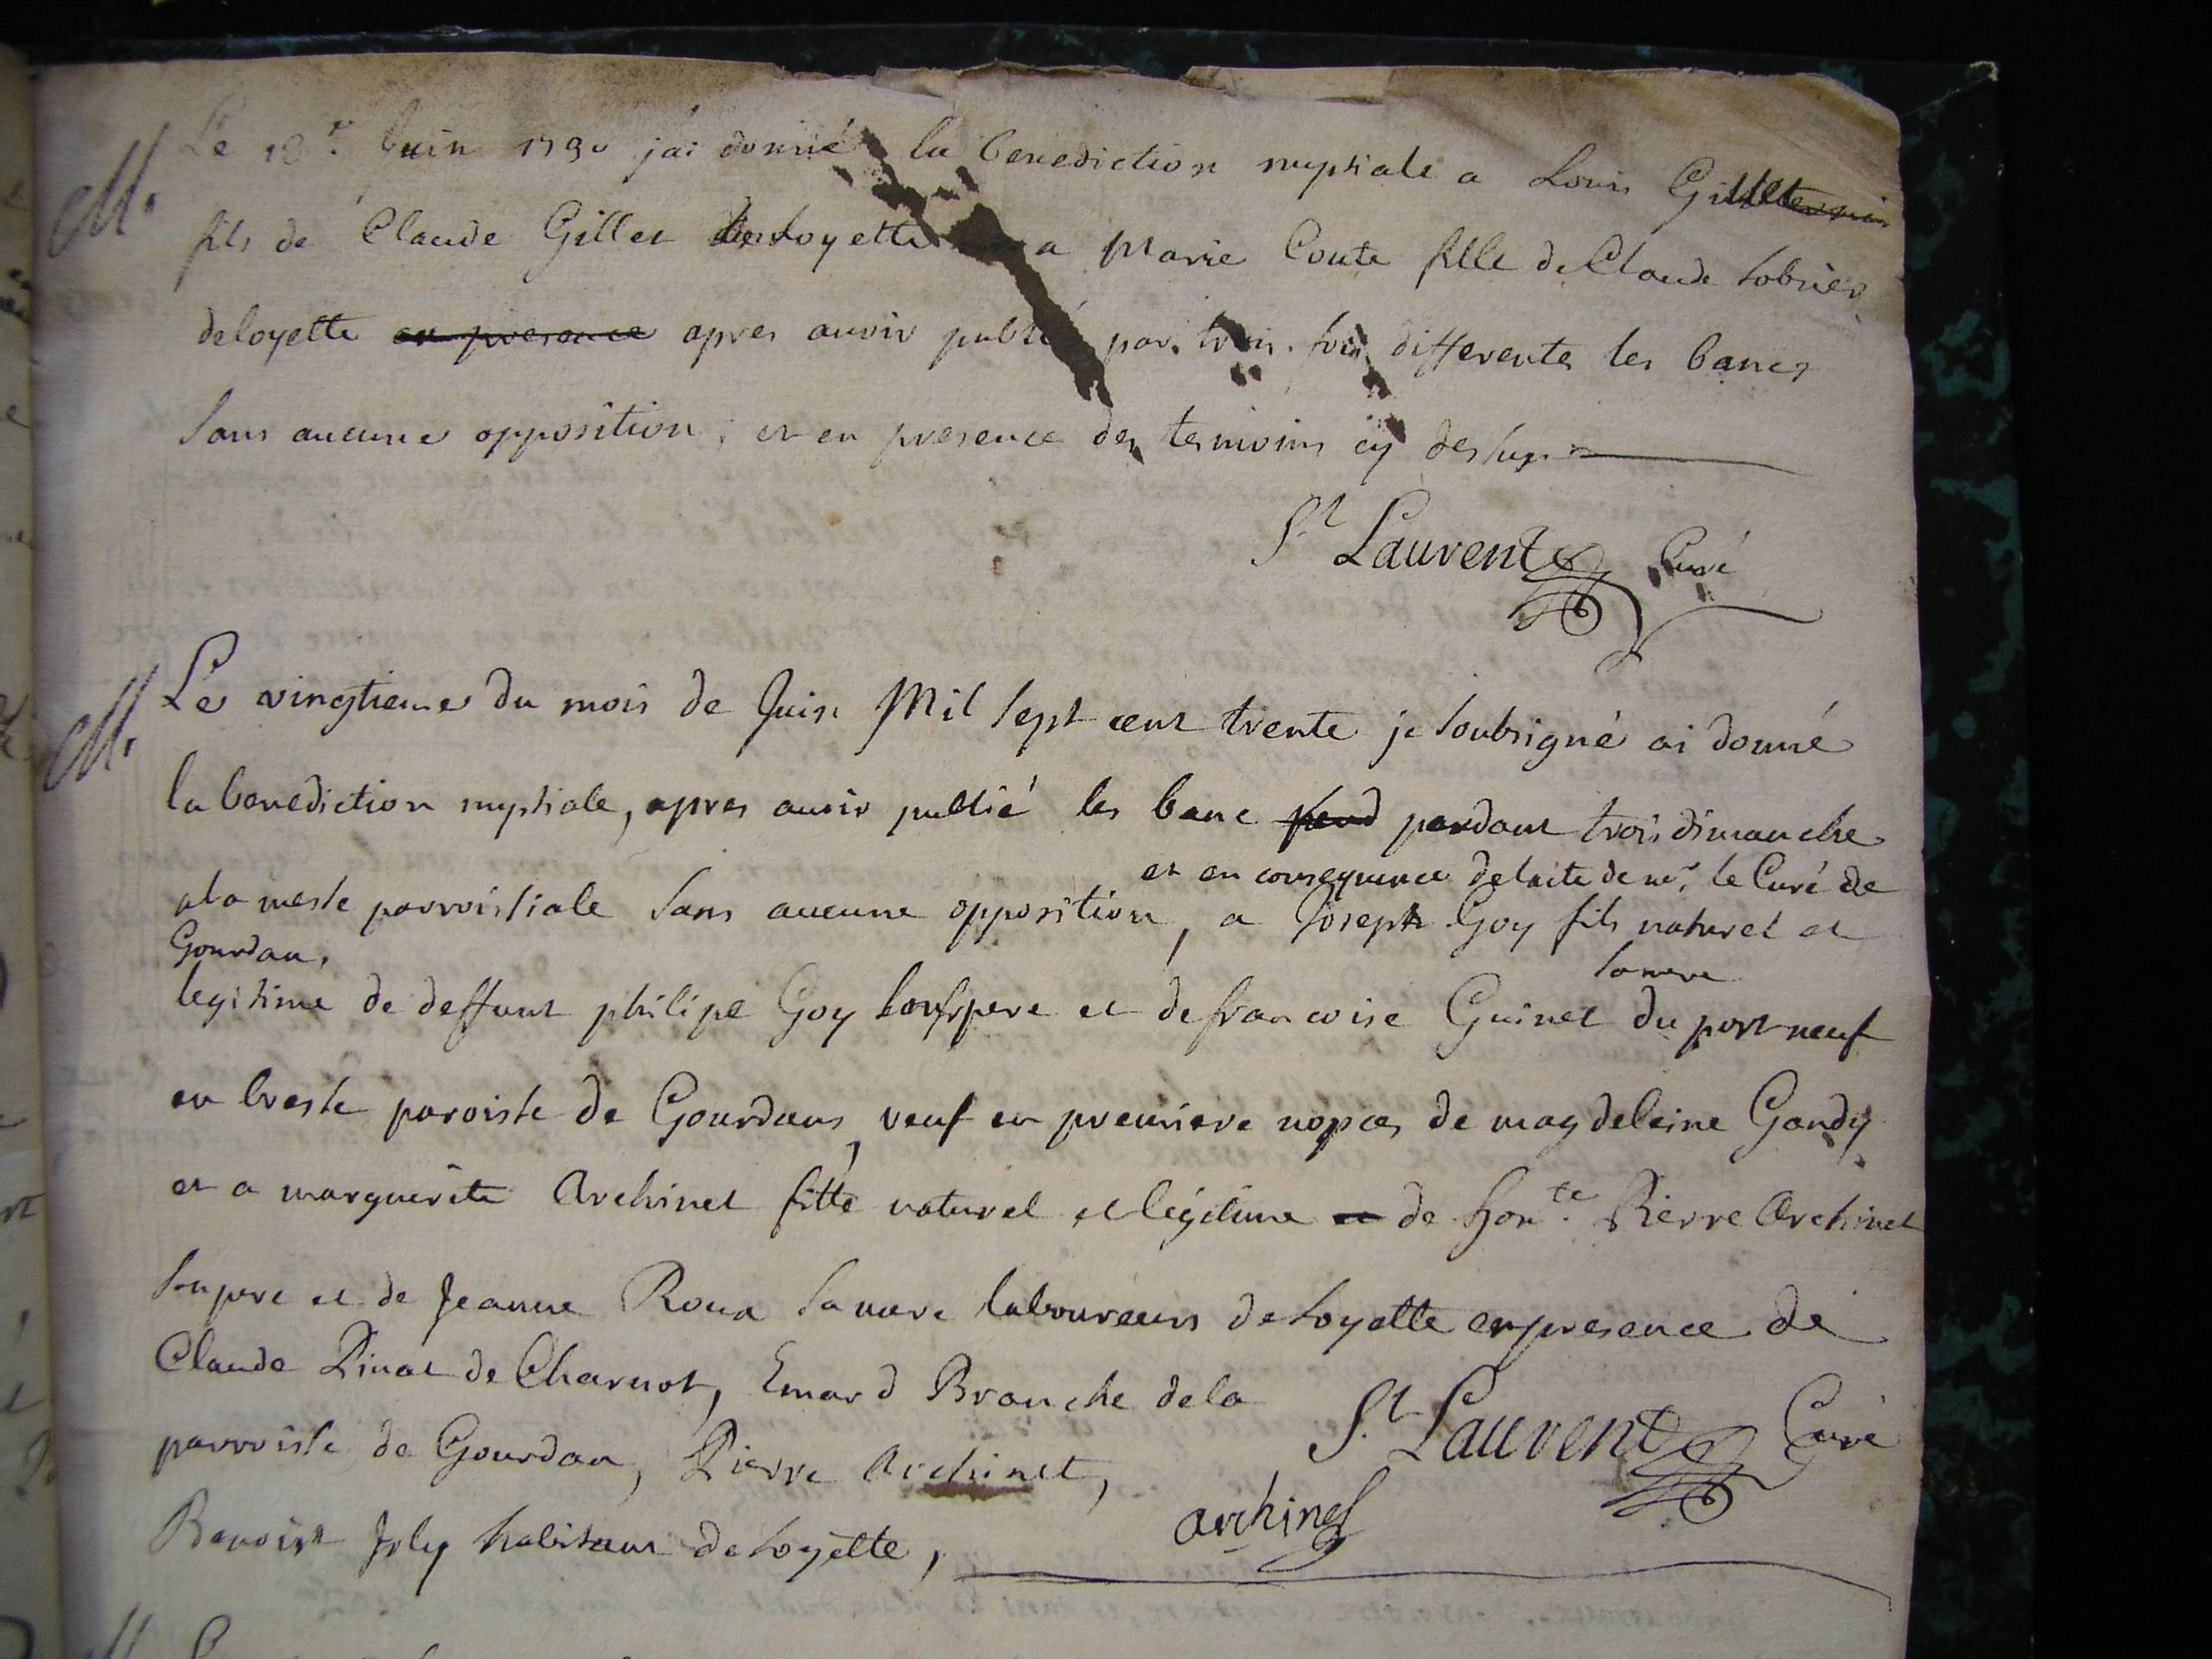 M. Le 18.e Juin 1730 j'ai donné la benediction nuptiale a Louis Gillet
fils de Claude Gillet de loyette a Marie Coute fille de Claude
deloyette en presence apres auoir publié par trois fois differentes les bancs
sans aucune opposition, et en presence des temoins cy dessus
St Laurent Curé
M. Le vingtieme du mois de Juin Mil sept cent trente je soubsigné ai donné
la benediction nuptiale, apres auoir publié les banc pend pendant trois dimanche
et en consequence de lacte de mr. le Curé de
a la messe parroissiale sans aucune opposition, a Joseph Goy fils naturel et
Gourdan,
sa mere
legitime de deffunt philipe Goy son pere et de francoise Guinet du port neuf
en bresse paroisse de Gourdans, veuf en premiere nopces de magdeleine Gandy
et a marguerite Archinet fille naturel et legitime et de hon.te Pierre Archinet
son pere et de Jeanne Roux sa mere laboureurs de loyette en presence de
Claude Pinat de Charnot, Emard Branche de la
parroisse de Gourdan, Pierre Archinet,
St Laurent Curé
Benoist Joly habitant de loyette,
archinet